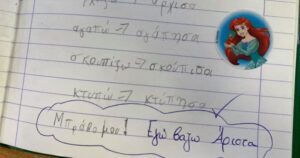 αγαπώ → αγάπησα
σκουπίζω → σκούπισα
κτυπώ → κτύπησα
Μπράβο μου! Εγώ βάζω Άριστα